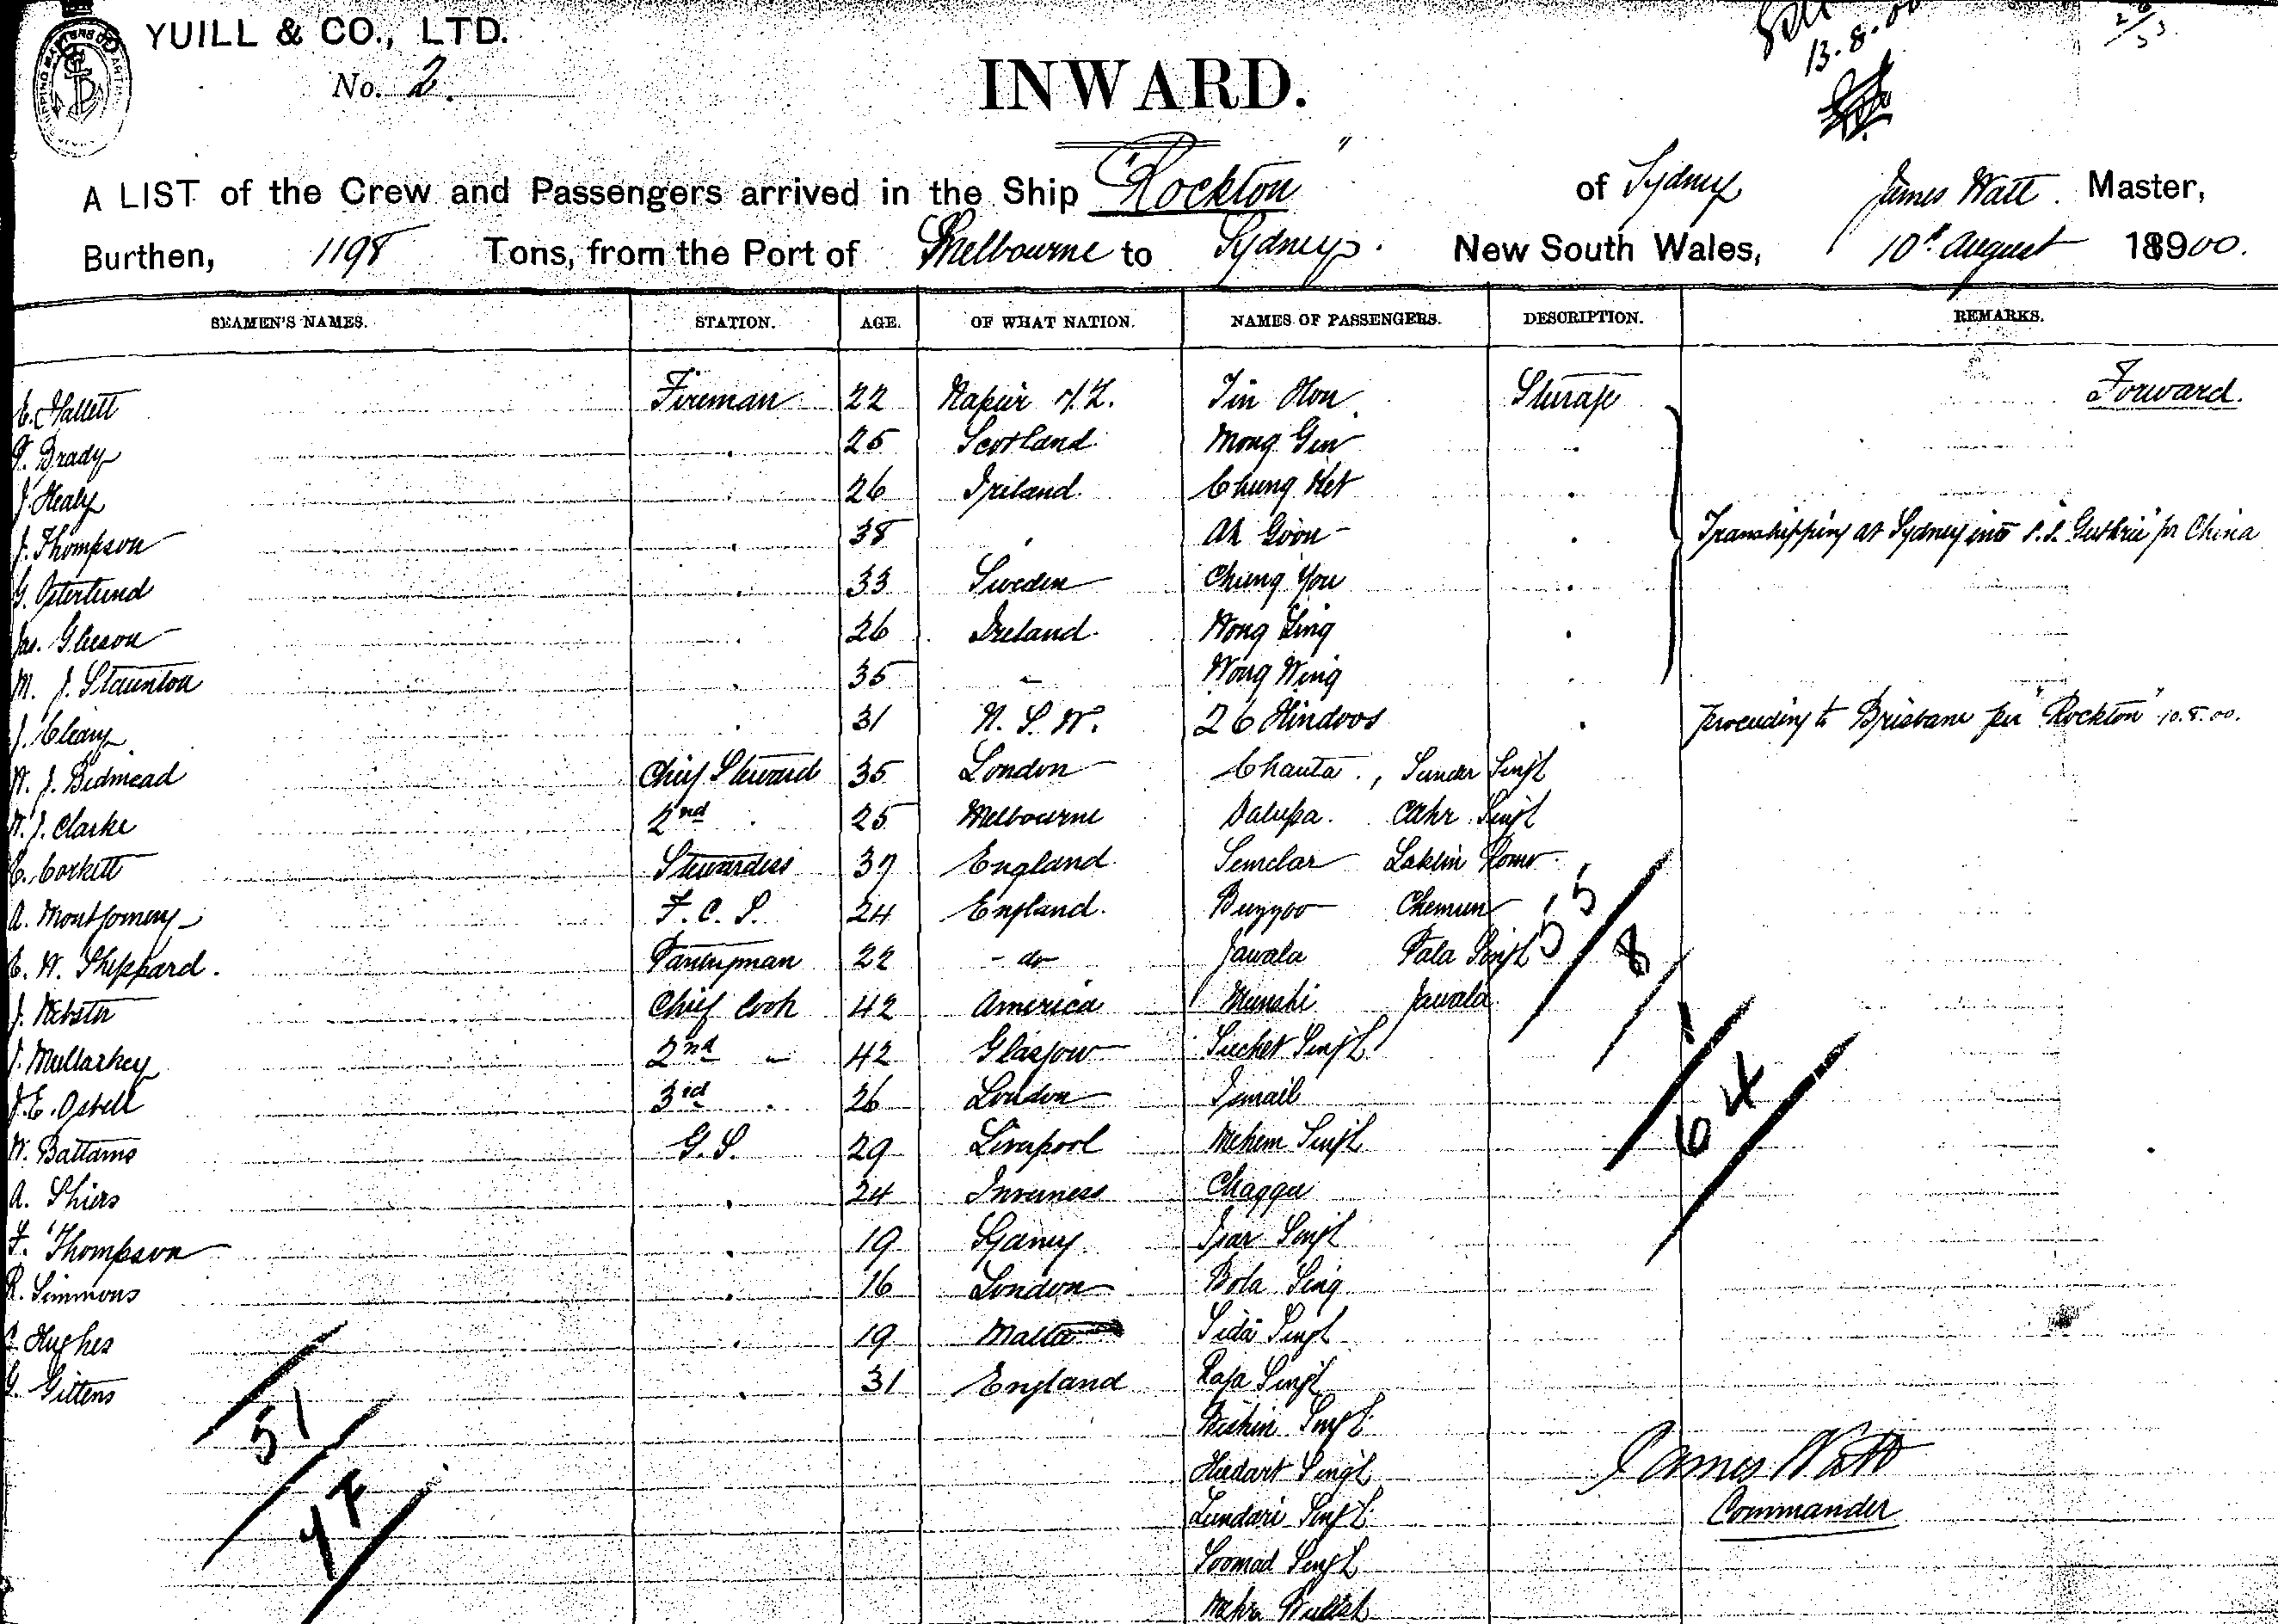 YUILL & CO., LTD.
No. 2.
13.8.00
INWARD.
A LIST of the Crew and Passengers arrived in the Ship "Rockton" of Sydney James Watt Master,
Burthen, 1198 Tons, from the Port of Melbourne to Sydney. New South Wales, 10th August 18900.
SEAMEN'S NAMES. STATION. AGE. OF WHAT NATION. NAMES OF PASSENGERS. DESCRIPTION. REMARKS.
E. Hallett Fireman 22 Napier N.Z. Tin Hon Steerage Forward.
Brady 25 Scotland Mong Gin
J. Healy 26 Ireland Chung Ket
J. Thompson 38 Ah Goon Transhipping at Sydney into S.S. "Guthrie" for China
G. Osterlund 33 Sweden Chung You
Jas. Gleeson 26 Ireland Wong Ling
M. J. Staunton 35 " Wong Wing
J. Cleary 31 N.S.W. 26 Hindoos proceeding to Brisbane per "Rockton" 10.8.00.
W. J. Bidmead Chief Steward 35 London Chanta, Sunder Singh
W. J. Clarke 2nd 25 Melbourne Dalupa. Singh
C. Corkett Stewardess 37 England Semclar
A. Montgomery F.C.S. 24 England. Buzzoo Chemun
E. W. Sheppard. Pantryman 22 - do Jawala Tala Singh
J. Webster Chief Cook 42 America Munshi Jawala
J. Mullarkey 2nd " 42 Glasgow Suchet Singh
J. E. Osbell 3rd 26 London Ismail
W. Battams G.S. 29 Liverpool Mehem Singh
A. Shiers 24 Inverness Chaggu
F. Thompson 19 Sydney Isar Singh
R. Simmons 16 London Bola Sing
Hughes 19 Malta Sida Singh
G. Gittens 31 England Raja Singh
Bishin Singh
Singh
Sundari Singh
Soomad Singh
55
8
1
64
51
47
James Watt
Commander